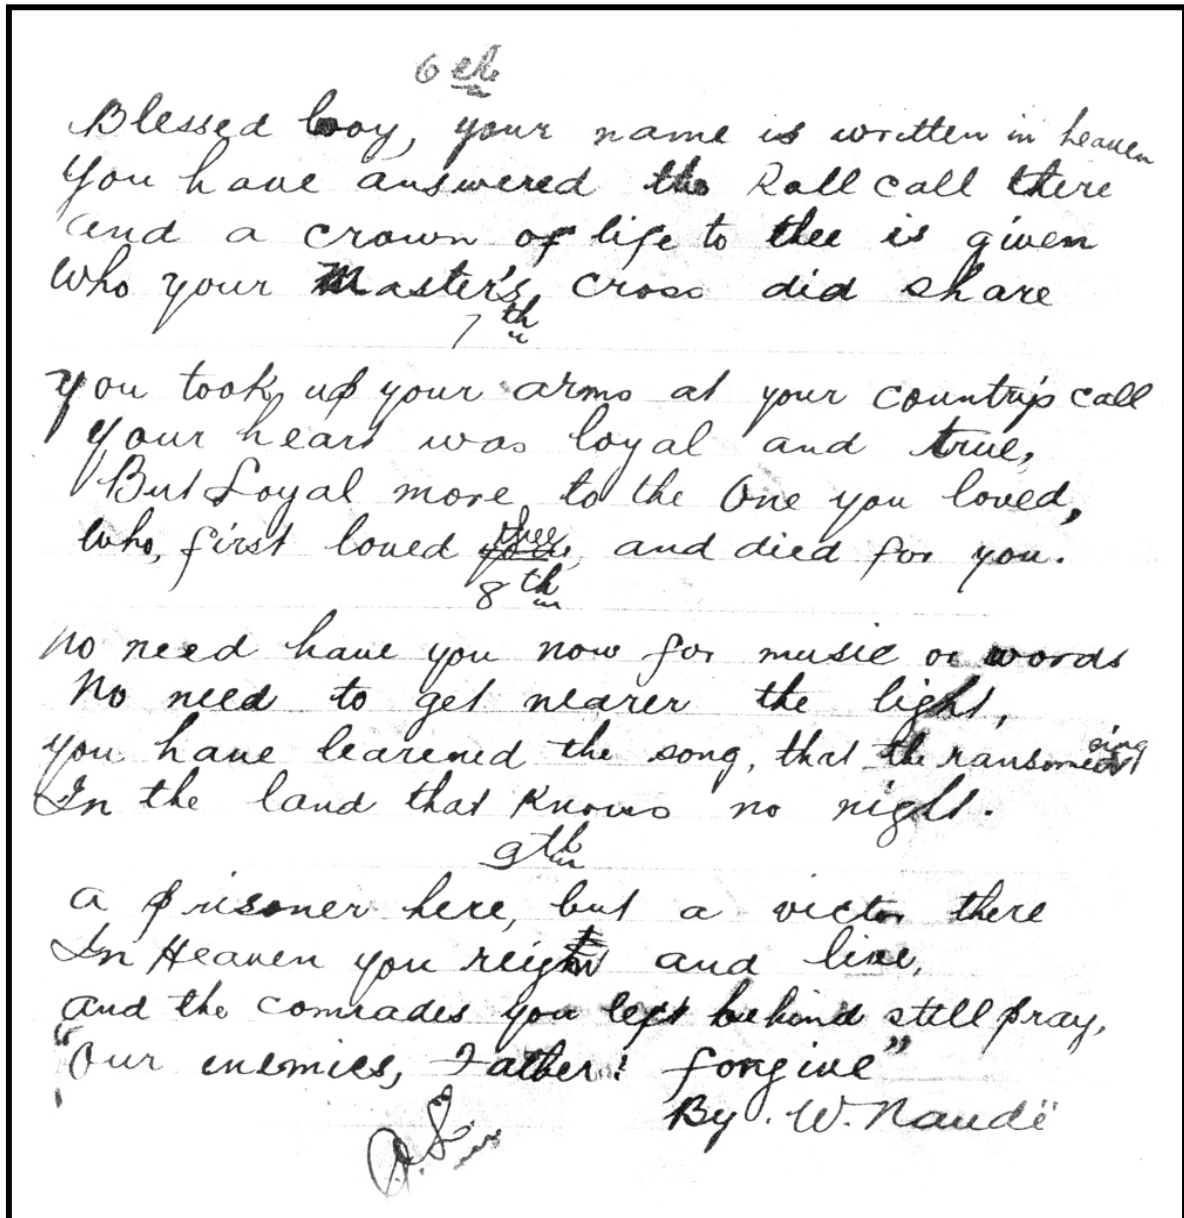 6th
Blessed boy, your name is written in heaven
You have answered the Roll call there
and a crown of life to thee is given
Who your Master's cross did share
7th
You took up your arms at your country's call
Your heart was loyal and true,
But Loyal more to the One you loved,
Who, first loved thee, and died for you.
8th
No need have you now for music or words
No need to get nearer the light,
You have learened the song, that the ransomed sing
In the land that knows no night.
9th
a prisoner here, but a victor there
In Heaven you reign and live,
and the comrades you left behind still pray,
"Our enemies, Father: forgive"
By. W. Naudë